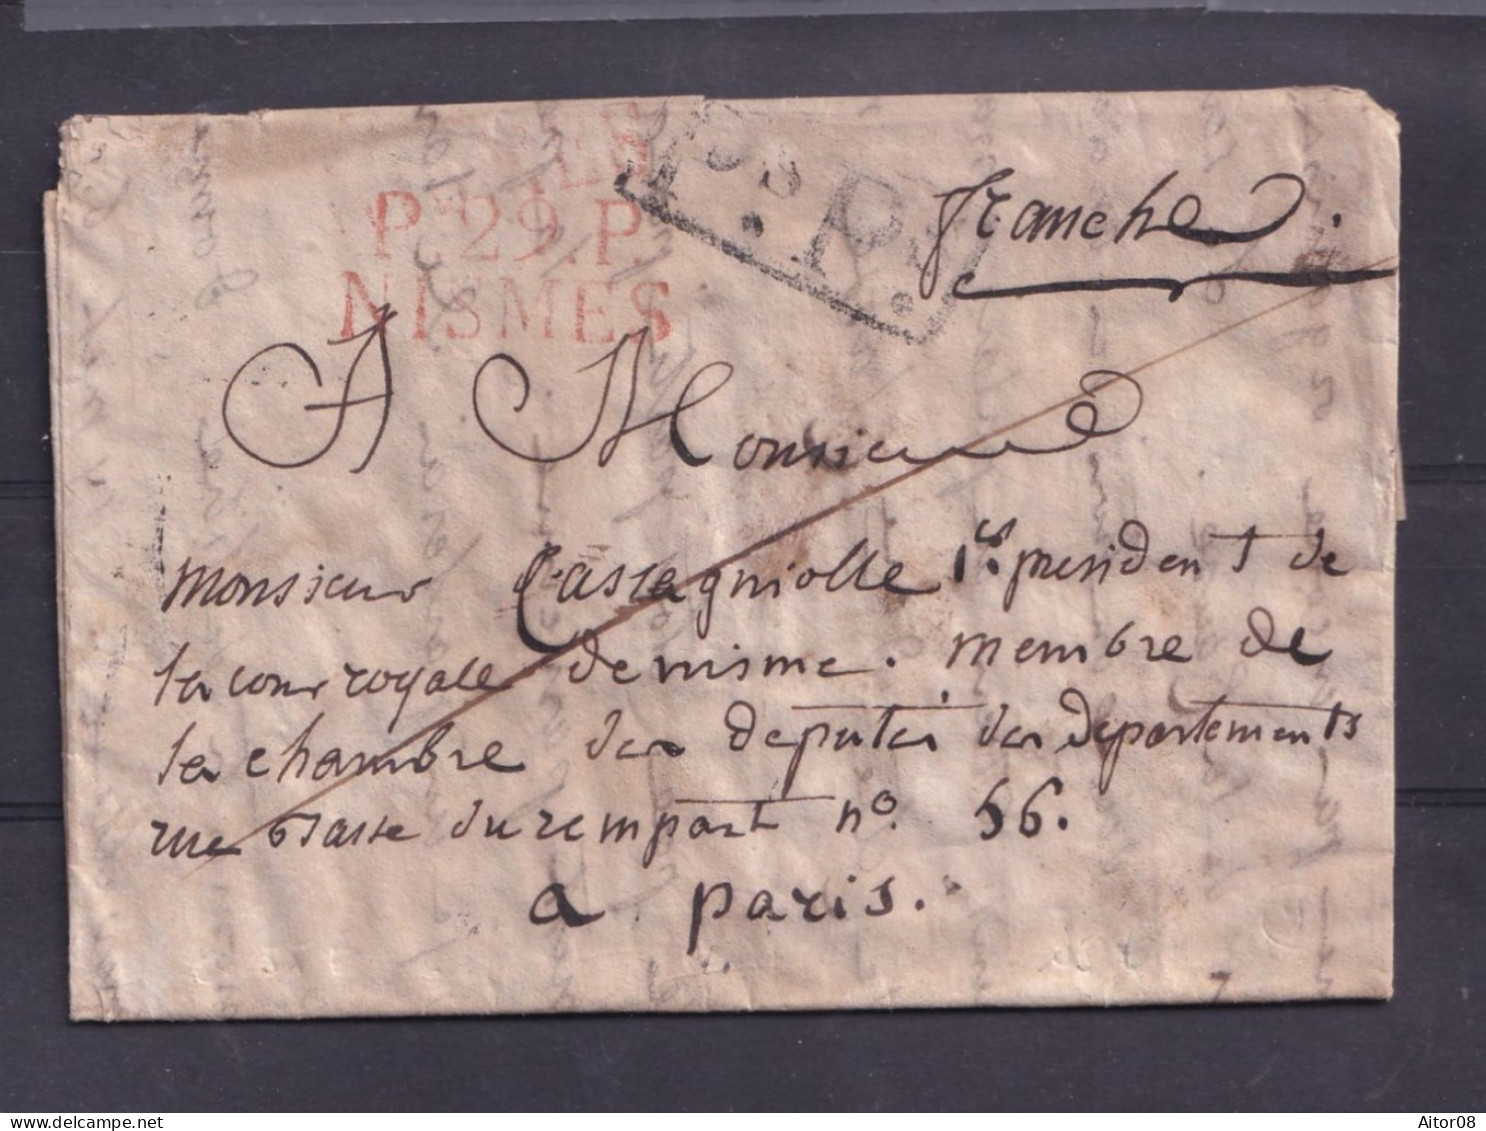 P.29.P.
NISMES
Ps.Ps.
franche.
A Monsieur
monsieur Castagniolle 1er president de
la cour royale denisme. membre de
la chambre des deputés des departements
rue basse du rempart no. 56.
a paris.
Aitor08